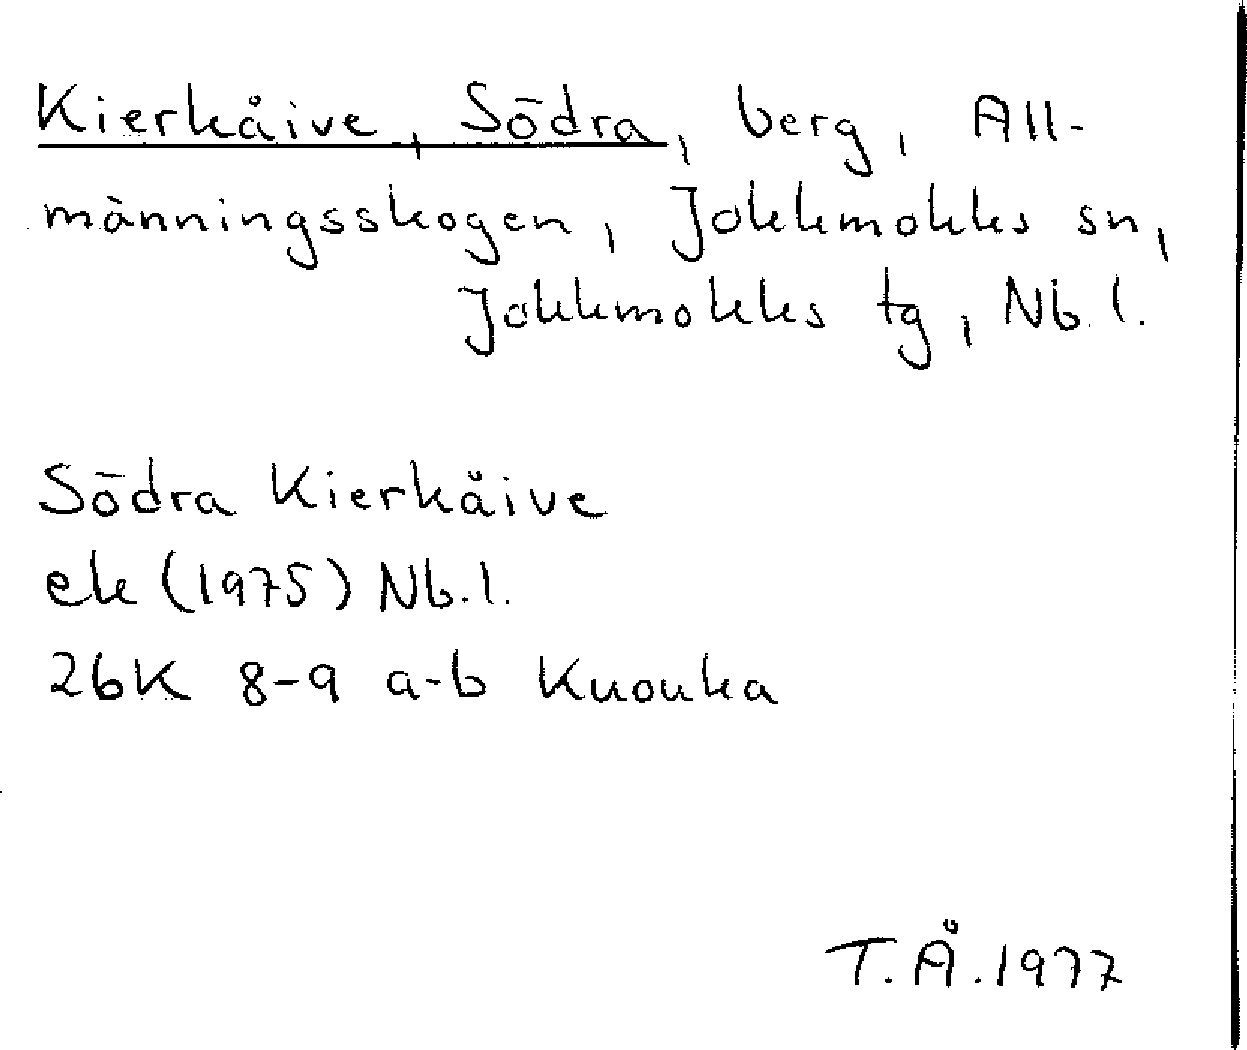 Kierkåive, Södra, berg, All-
männingsskogen, Jokkmokks sn,
Jokkmokks tg, Nb.l.
Södra Kierkåive
ek (1975) Nb.l.
26K 8-9 a-b Kuouka
T.Å.1977